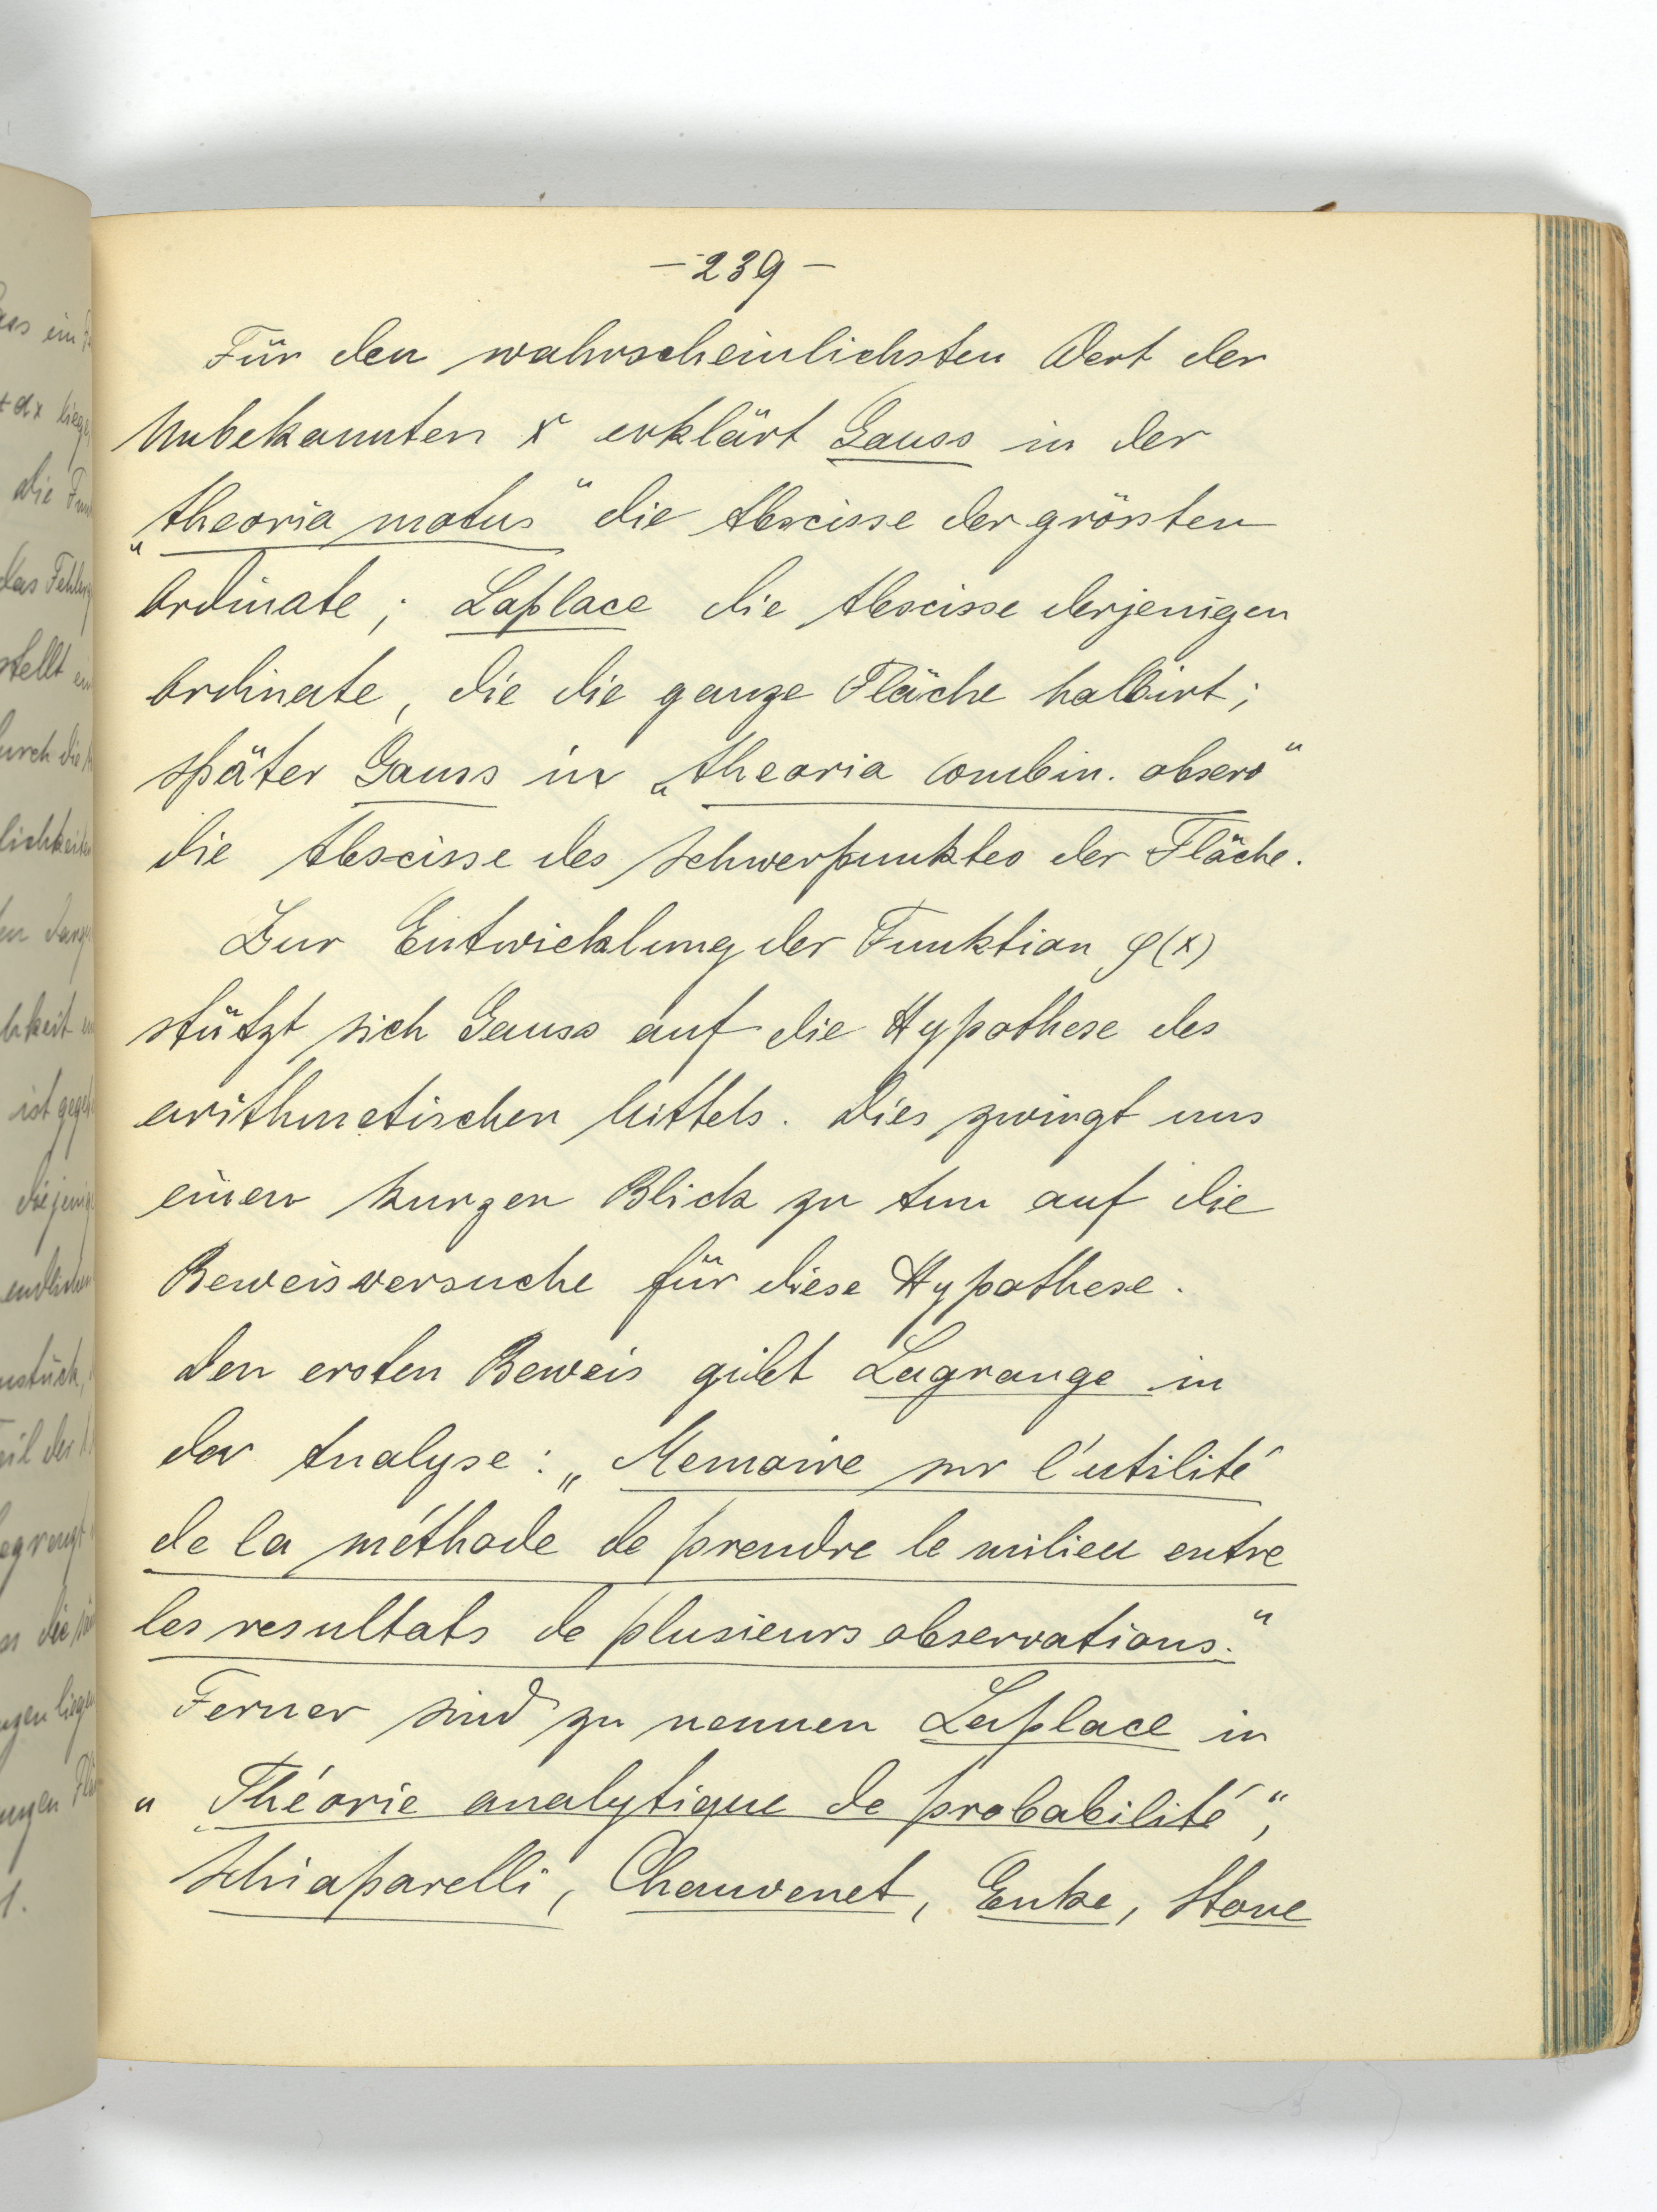 – 239 –
Für den wahrscheinlichsten Wert der
Unbekannten x erklärt Gauss in der
„theoria motus“ die Abscisse der grössten
Ordinate; Laplace die Abscisse derjenigen
Ordinate, die die ganze Fläche halbirt;
später Gauss in „theoria combin. observ“
die Abscisse des Schwerpunktes der Fläche.
Zur Entwicklung der Funktion φ(x)
stützt sich Gauss auf die Hypothese des
arithmetischen Mittels. Dies zwingt uns
einen kurzen Blick zu tun auf die
Beweisversuche für diese Hypothese.
Den ersten Beweis gibt Lagrange in
der Analyse: „Memoire sur l'utilité
de la méthode de prendre le milieu entre
les resultats de plusieurs observations.“
Ferner sind zu nennen Laplace in
„Théorie analytique de probabilité“,
Schiaparelli, Chauvenet, Enke, Stone